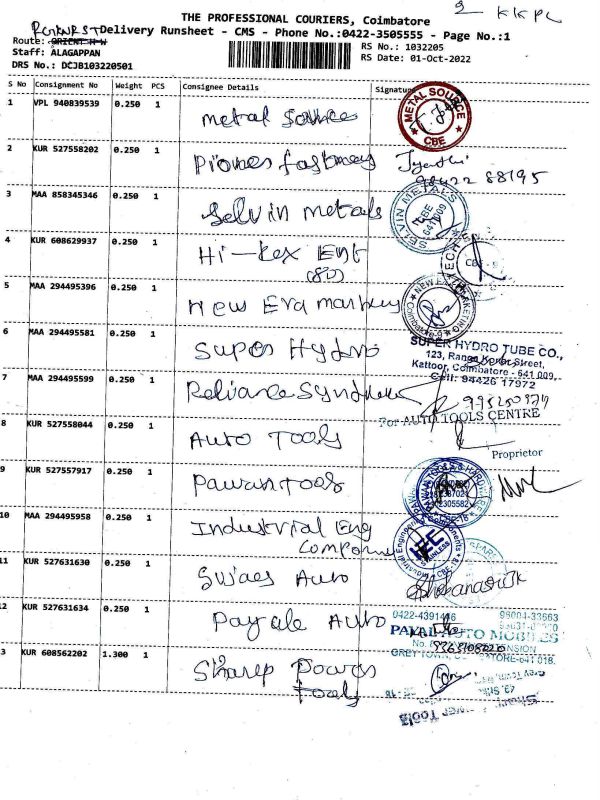 THE PROFESSIONAL COURIERS, Coimbatore
2 - KKPL
Delivery Runsheet - CMS - Phone No.:0422-3505555 - Page No.:1
Route: ORIENT H W
RS No.: 1032205
Staff: ALAGAPPAN
RS Date: 01-Oct-2022
DRS No.: DCJB103220501
S No Consignment No Weight PCS Consignee Details Signature
1 VPL 940839539 0.250 1 metal Source
METAL SOURCE CBE
2 KUR 527558202 0.250 1
Jyothi
98422 88195
3 MAA 858345346 0.250 1 Selvin metals
SELVIN METALS CBE 641009
4 KUR 608629937 0.250 1 Hi-tex Eng
(80)
5 MAA 294495396 0.250 1 New Era marketing
6 MAA 294495581 0.250 1 Super Hydro
SUPER HYDRO TUBE CO.,
123, Ranga Konar Street,
Kattoor, Coimbatore - 641 009.
Cell: 94426 17972
7 MAA 294495599 0.250 1 Reliance Syndicate
For AUTO TOOLS CENTRE
8 KUR 527558044 0.250 1 Auto Tools
Proprietor
9 KUR 527557917 0.250 1 Pawan Tools
10 MAA 294495958 0.250 1 Industrial Eng
Component
11 KUR 527631630 0.250 1 Auto
12 KUR 527631634 0.250 1 Payale Auto
0422-4391446 98004-33663
PAYAL AUTO MOBILES
GREY TOWN, COIMBATORE-641 018.
3 KUR 608562202 1.300 1 Sharp Power
Tools